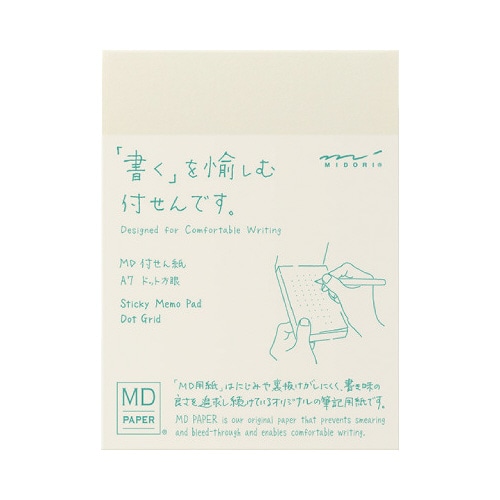 「書く」を愉しむ
付せんです。
MIDORI®
Designed for Comfortable Writing
MD 付せん紙
A7 ドット方眼
Sticky Memo Pad
Dot Grid
MD
PAPER ®
「MD用紙」はにじみや裏抜けがしにくく、書き味の
良さを追求し続けているオリジナルの筆記用紙です。
MD PAPER is our original paper that prevents smearing
and bleed-through and enables comfortable writing.